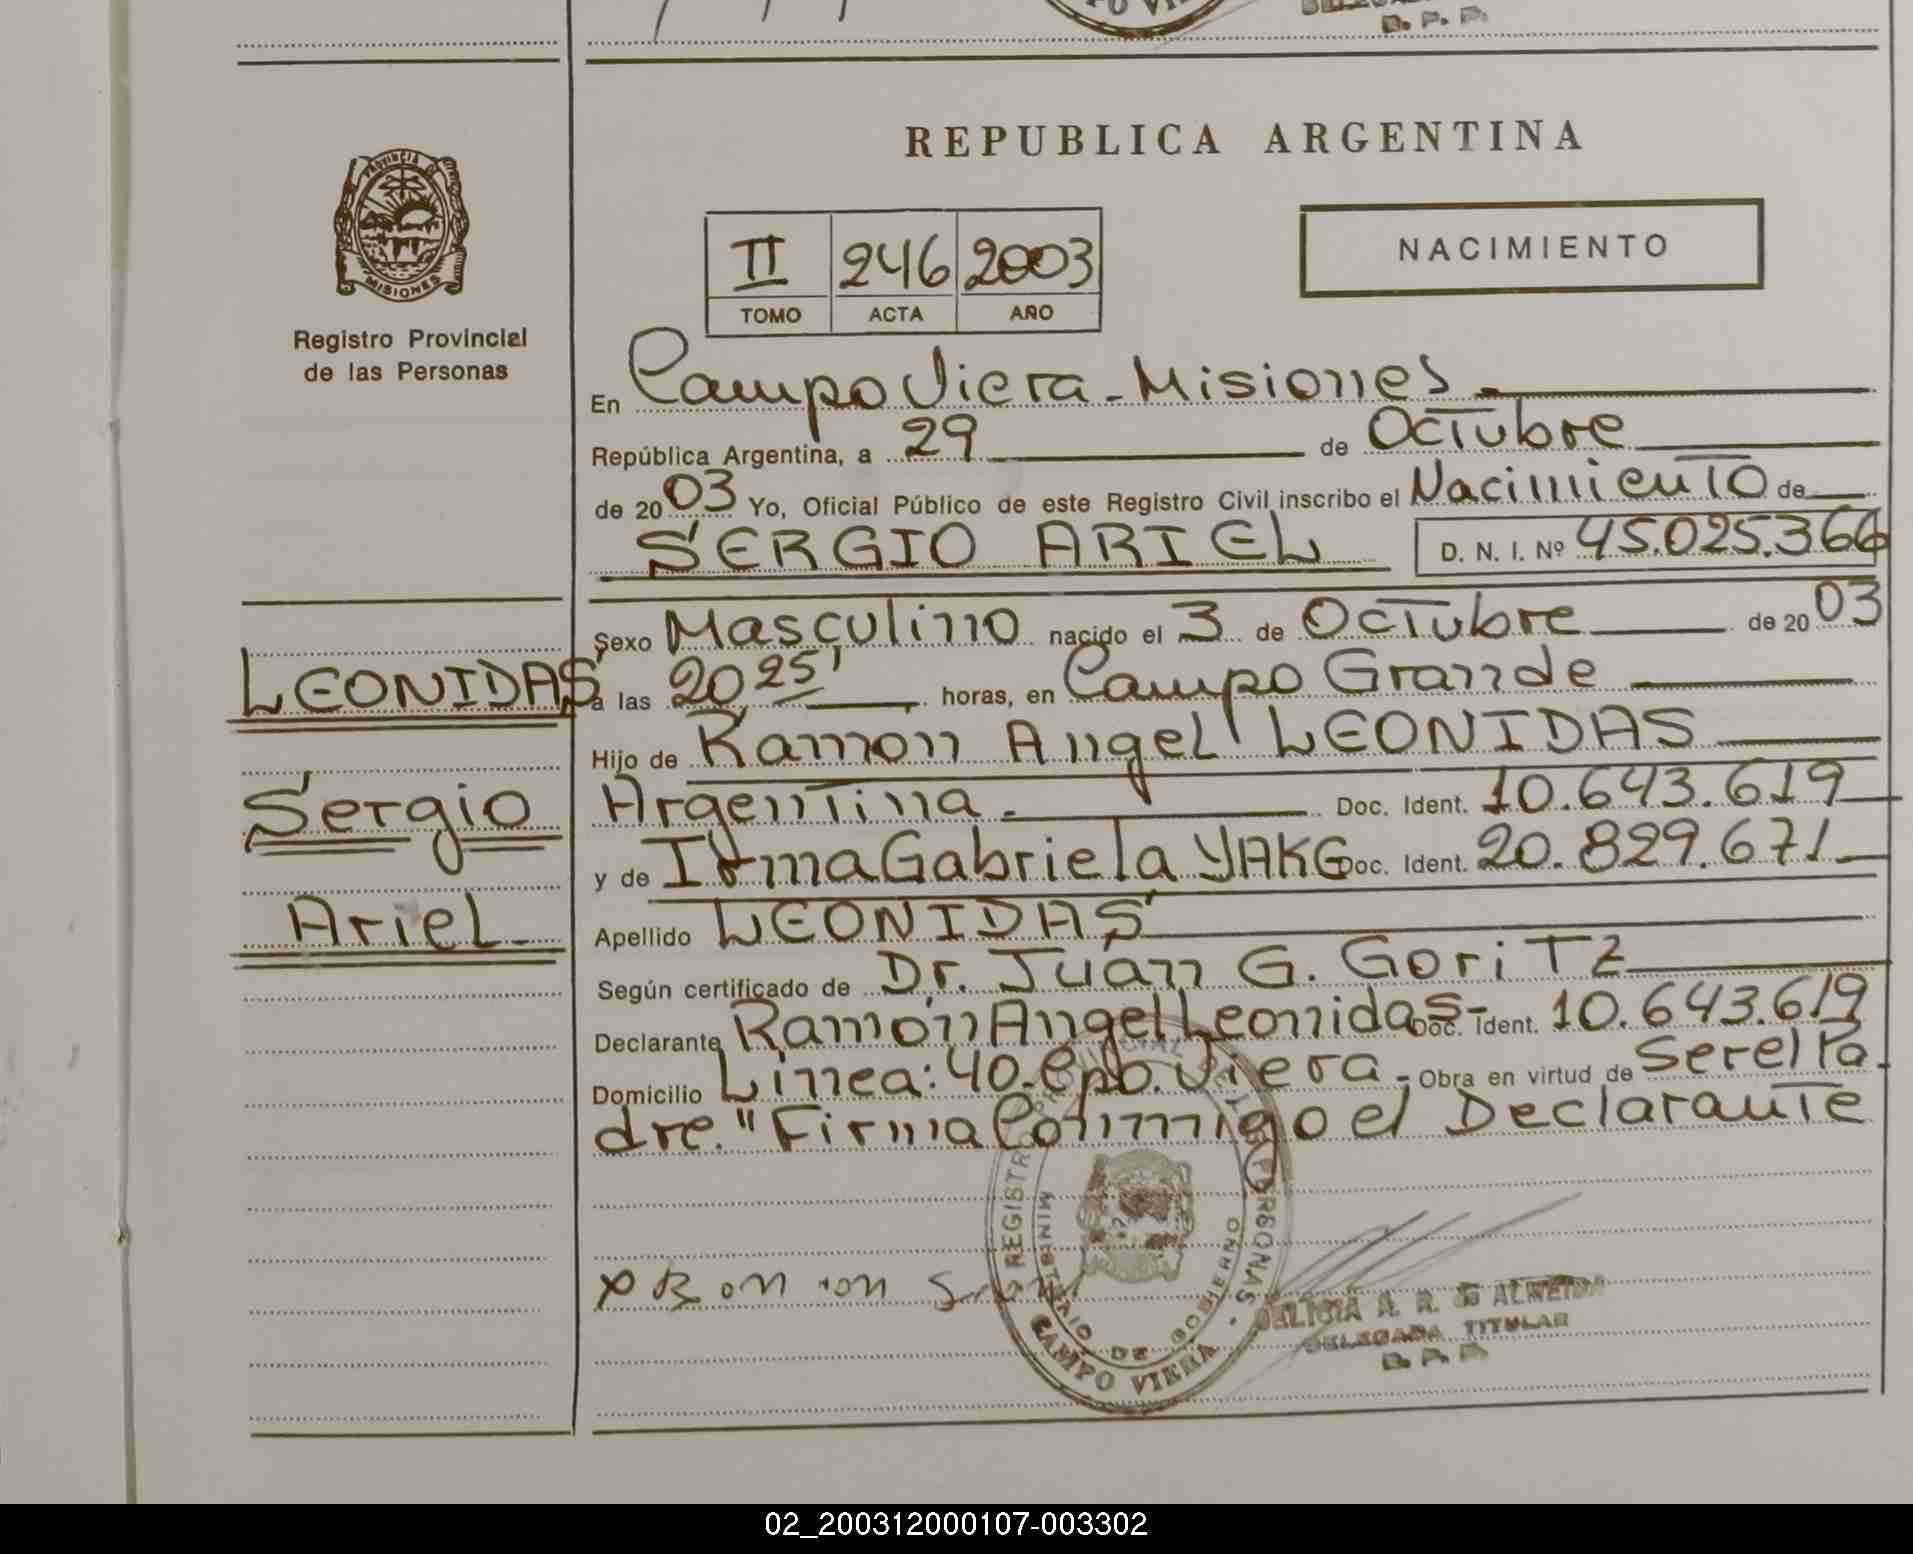 D. P. P.
PROVINCIA DE
MISIONES
Registro Provincial
de las Personas
LEONIDAS
Sergio
Ariel
REPUBLICA ARGENTINA
II 246 2003
TOMO ACTA AÑO
NACIMIENTO
En Campo Viera - Misiones
República Argentina, a 29 de Octubre
de 2003 Yo, Oficial Público de este Registro Civil inscribo el Nacimiento de
SERGIO ARIEL D. N. I. Nº 45.025.366
Sexo Masculino nacido el 3 de Octubre de 2003
a las 20 25' horas, en Campo Grande
Hijo de Ramon Angel LEONIDAS
Argentina. Doc. Ident. 10.643.619
y de Irma Gabriela YAKG Doc. Ident. 20.829.671
Apellido LEONIDAS
Según certificado de Dr. Juan G. GoriTz
Declarante Ramón Angel Leonidas- Doc. Ident. 10.643.619
Domicilio Linea: 40. Cpo. Viera - Obra en virtud de Ser el Pa
dre. " Firma Conmmigo el Declarante
REGISTRO PROVINCIAL DE LAS PERSONAS
MINISTERIO DE GOBIERNO
CAMPO VIERA
A. R. DE ALMEIDA
DELEGADA TITULAR
D. P. P.
02_200312000107-003302